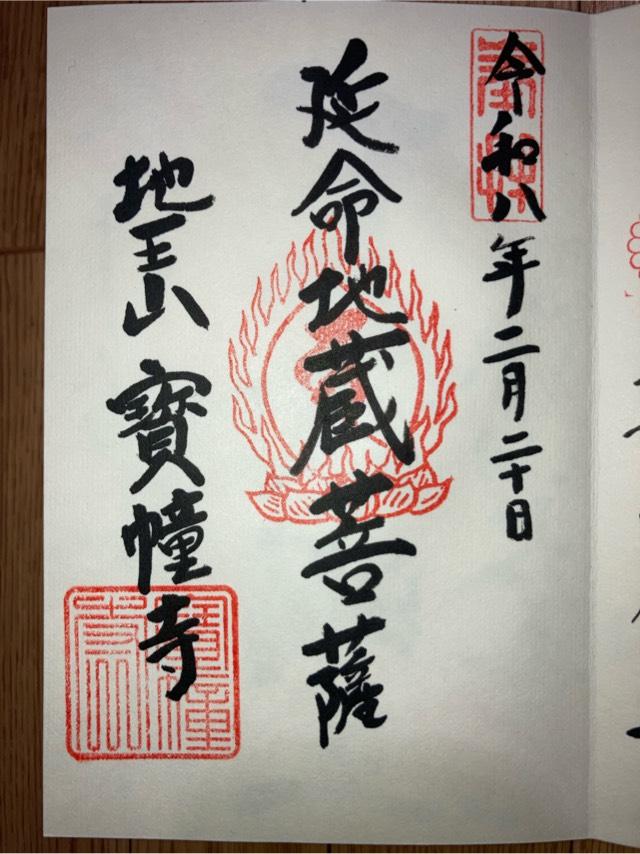 奉拝
令和八年二月二十日
延命地蔵菩薩
地王山 寶幢寺